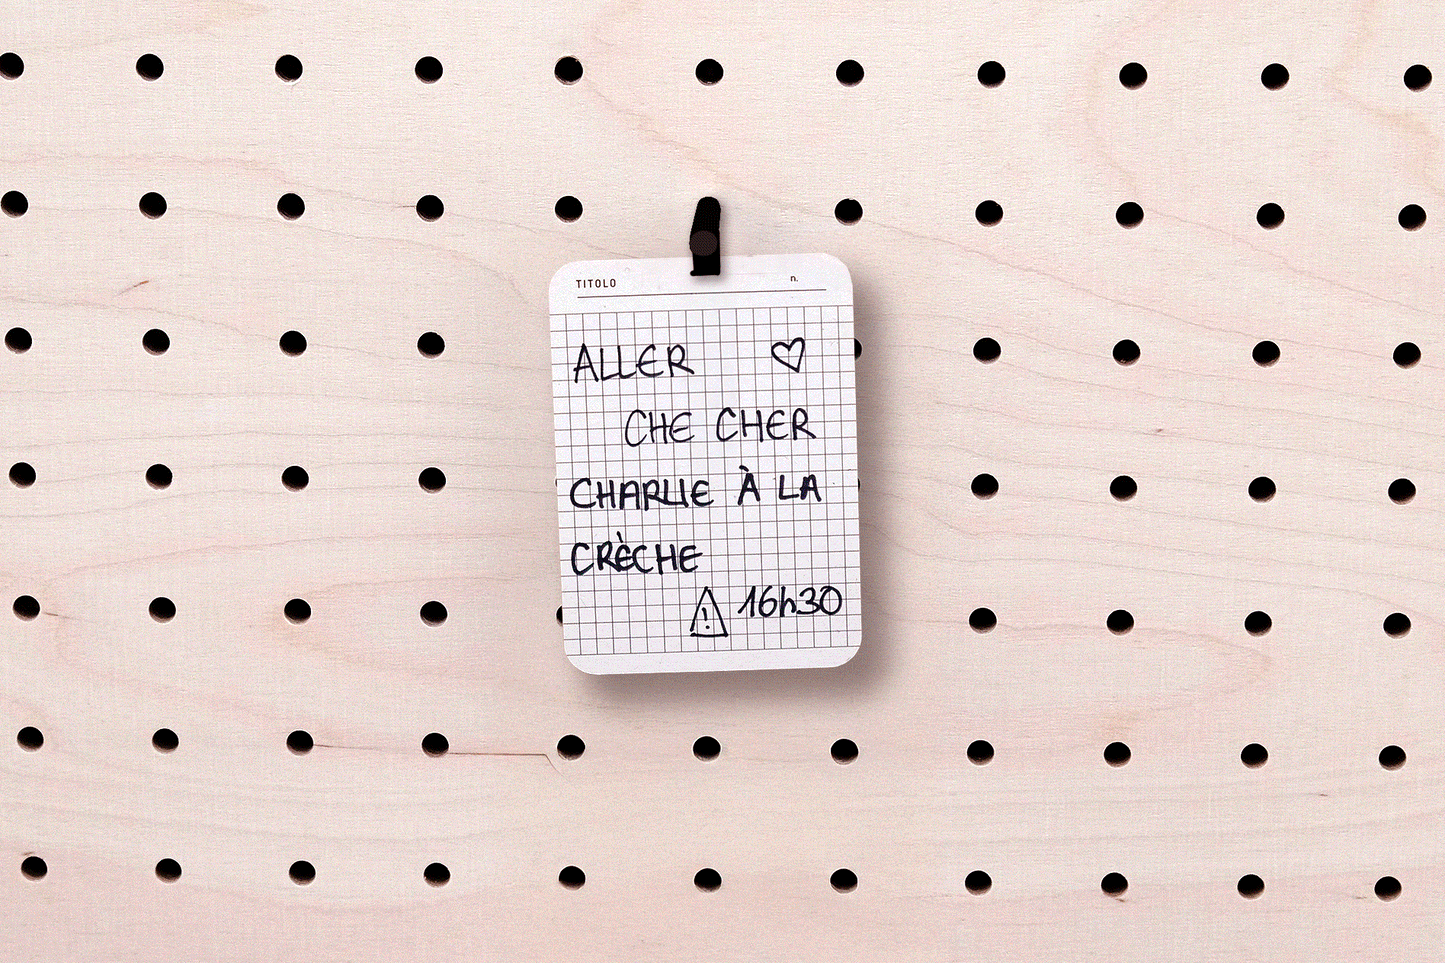 TITOLO n.
ALLER ♡
CHE CHER
CHARLIE À LA
CRÈCHE
⚠ 16h30